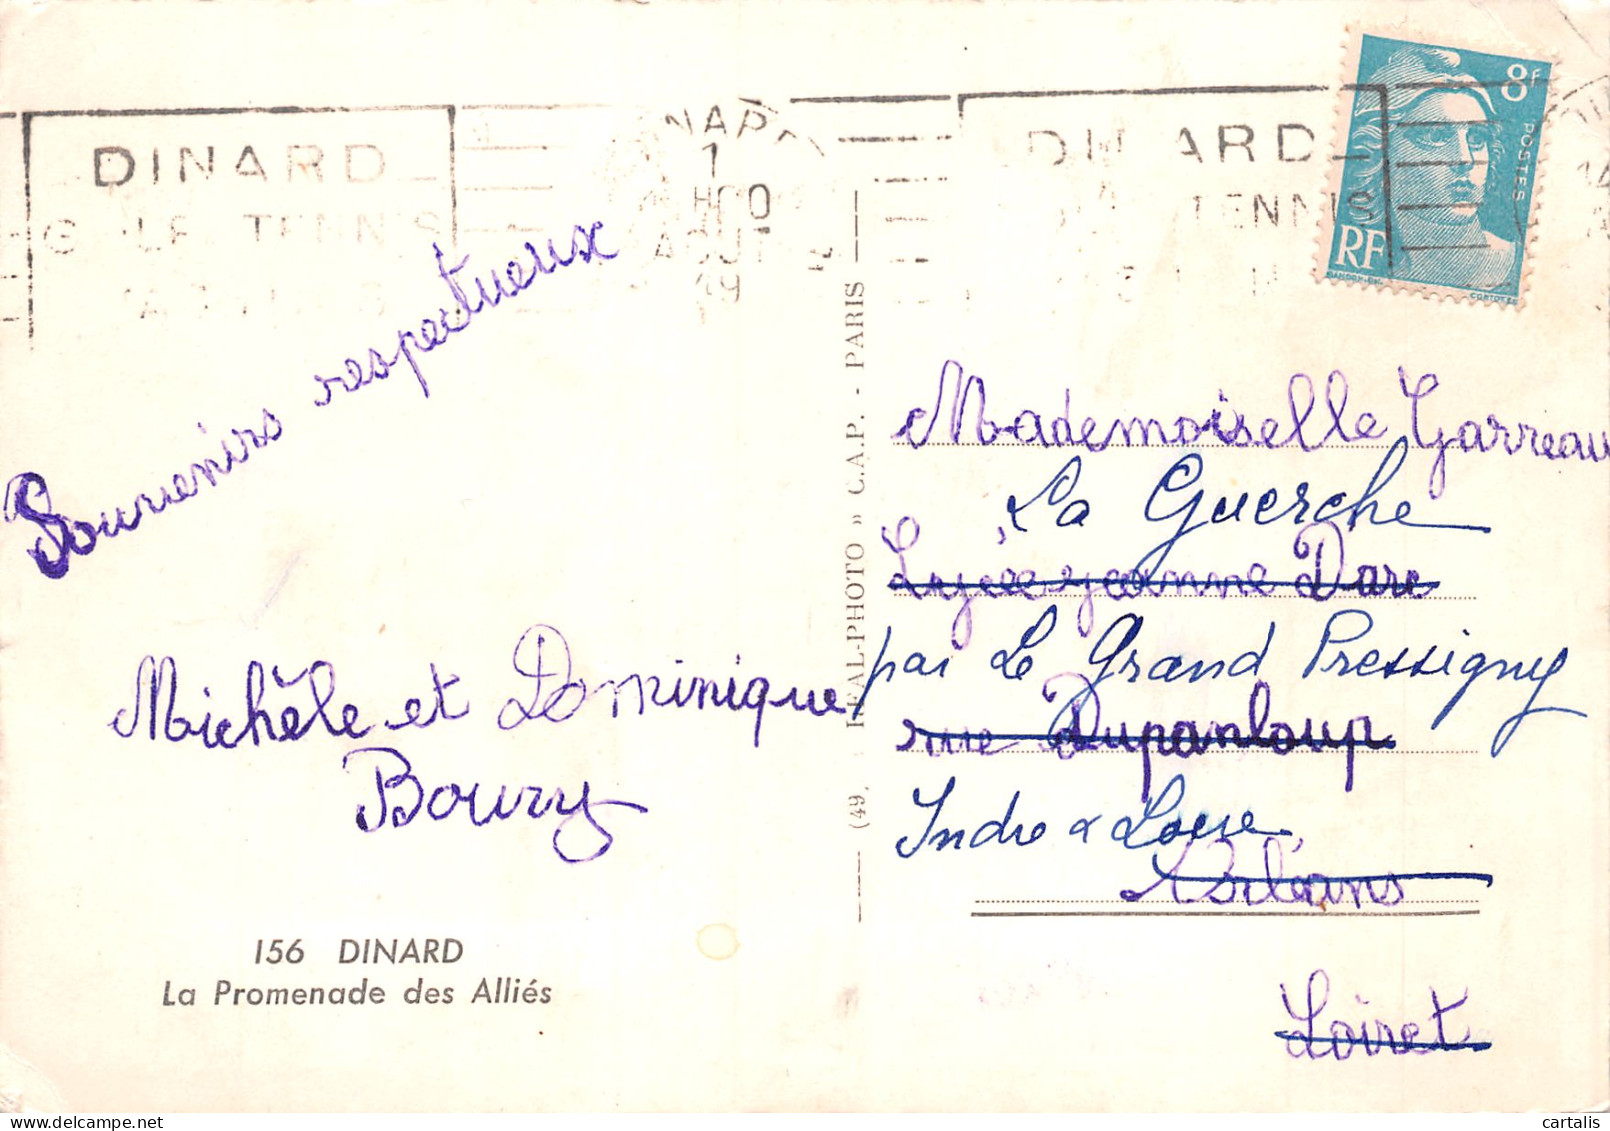 DINARD
TENNIS
1
AOUT
49
DINARD
TENNIS
8F
POSTES
RF
Souvenirs respectueux
Michèle et Dominique
Boury
156 DINARD
La Promenade des Alliés
RÉAL-PHOTO » C.A.P. - PARIS
(49,
Mademoiselle Garreau
La Guerche
Lycée Jeanne Darc
par Le Grand Pressigny
rue Dupanloup
Indre & Loire
Orléans
Loiret
cartalis